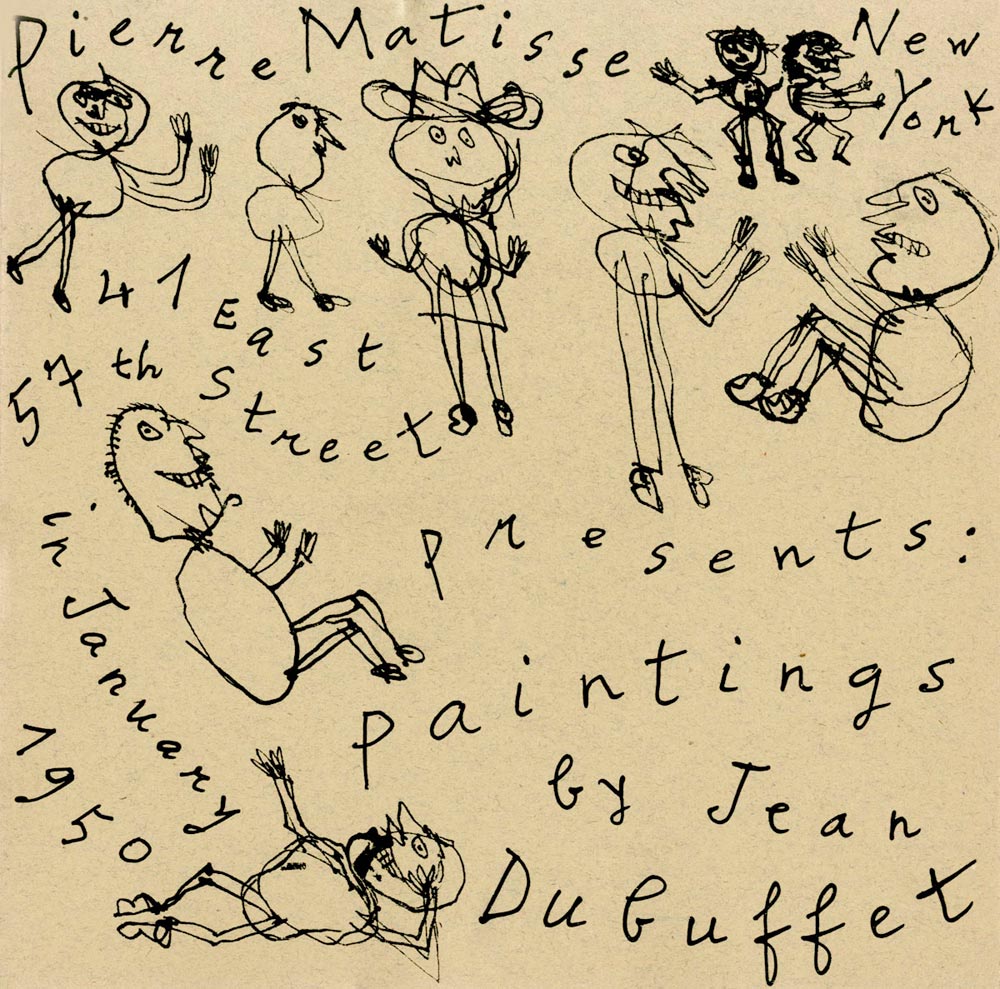 Pierre Matisse New
York
41 East
57th Street
in January
1950
presents:
paintings
by Jean
Dubuffet